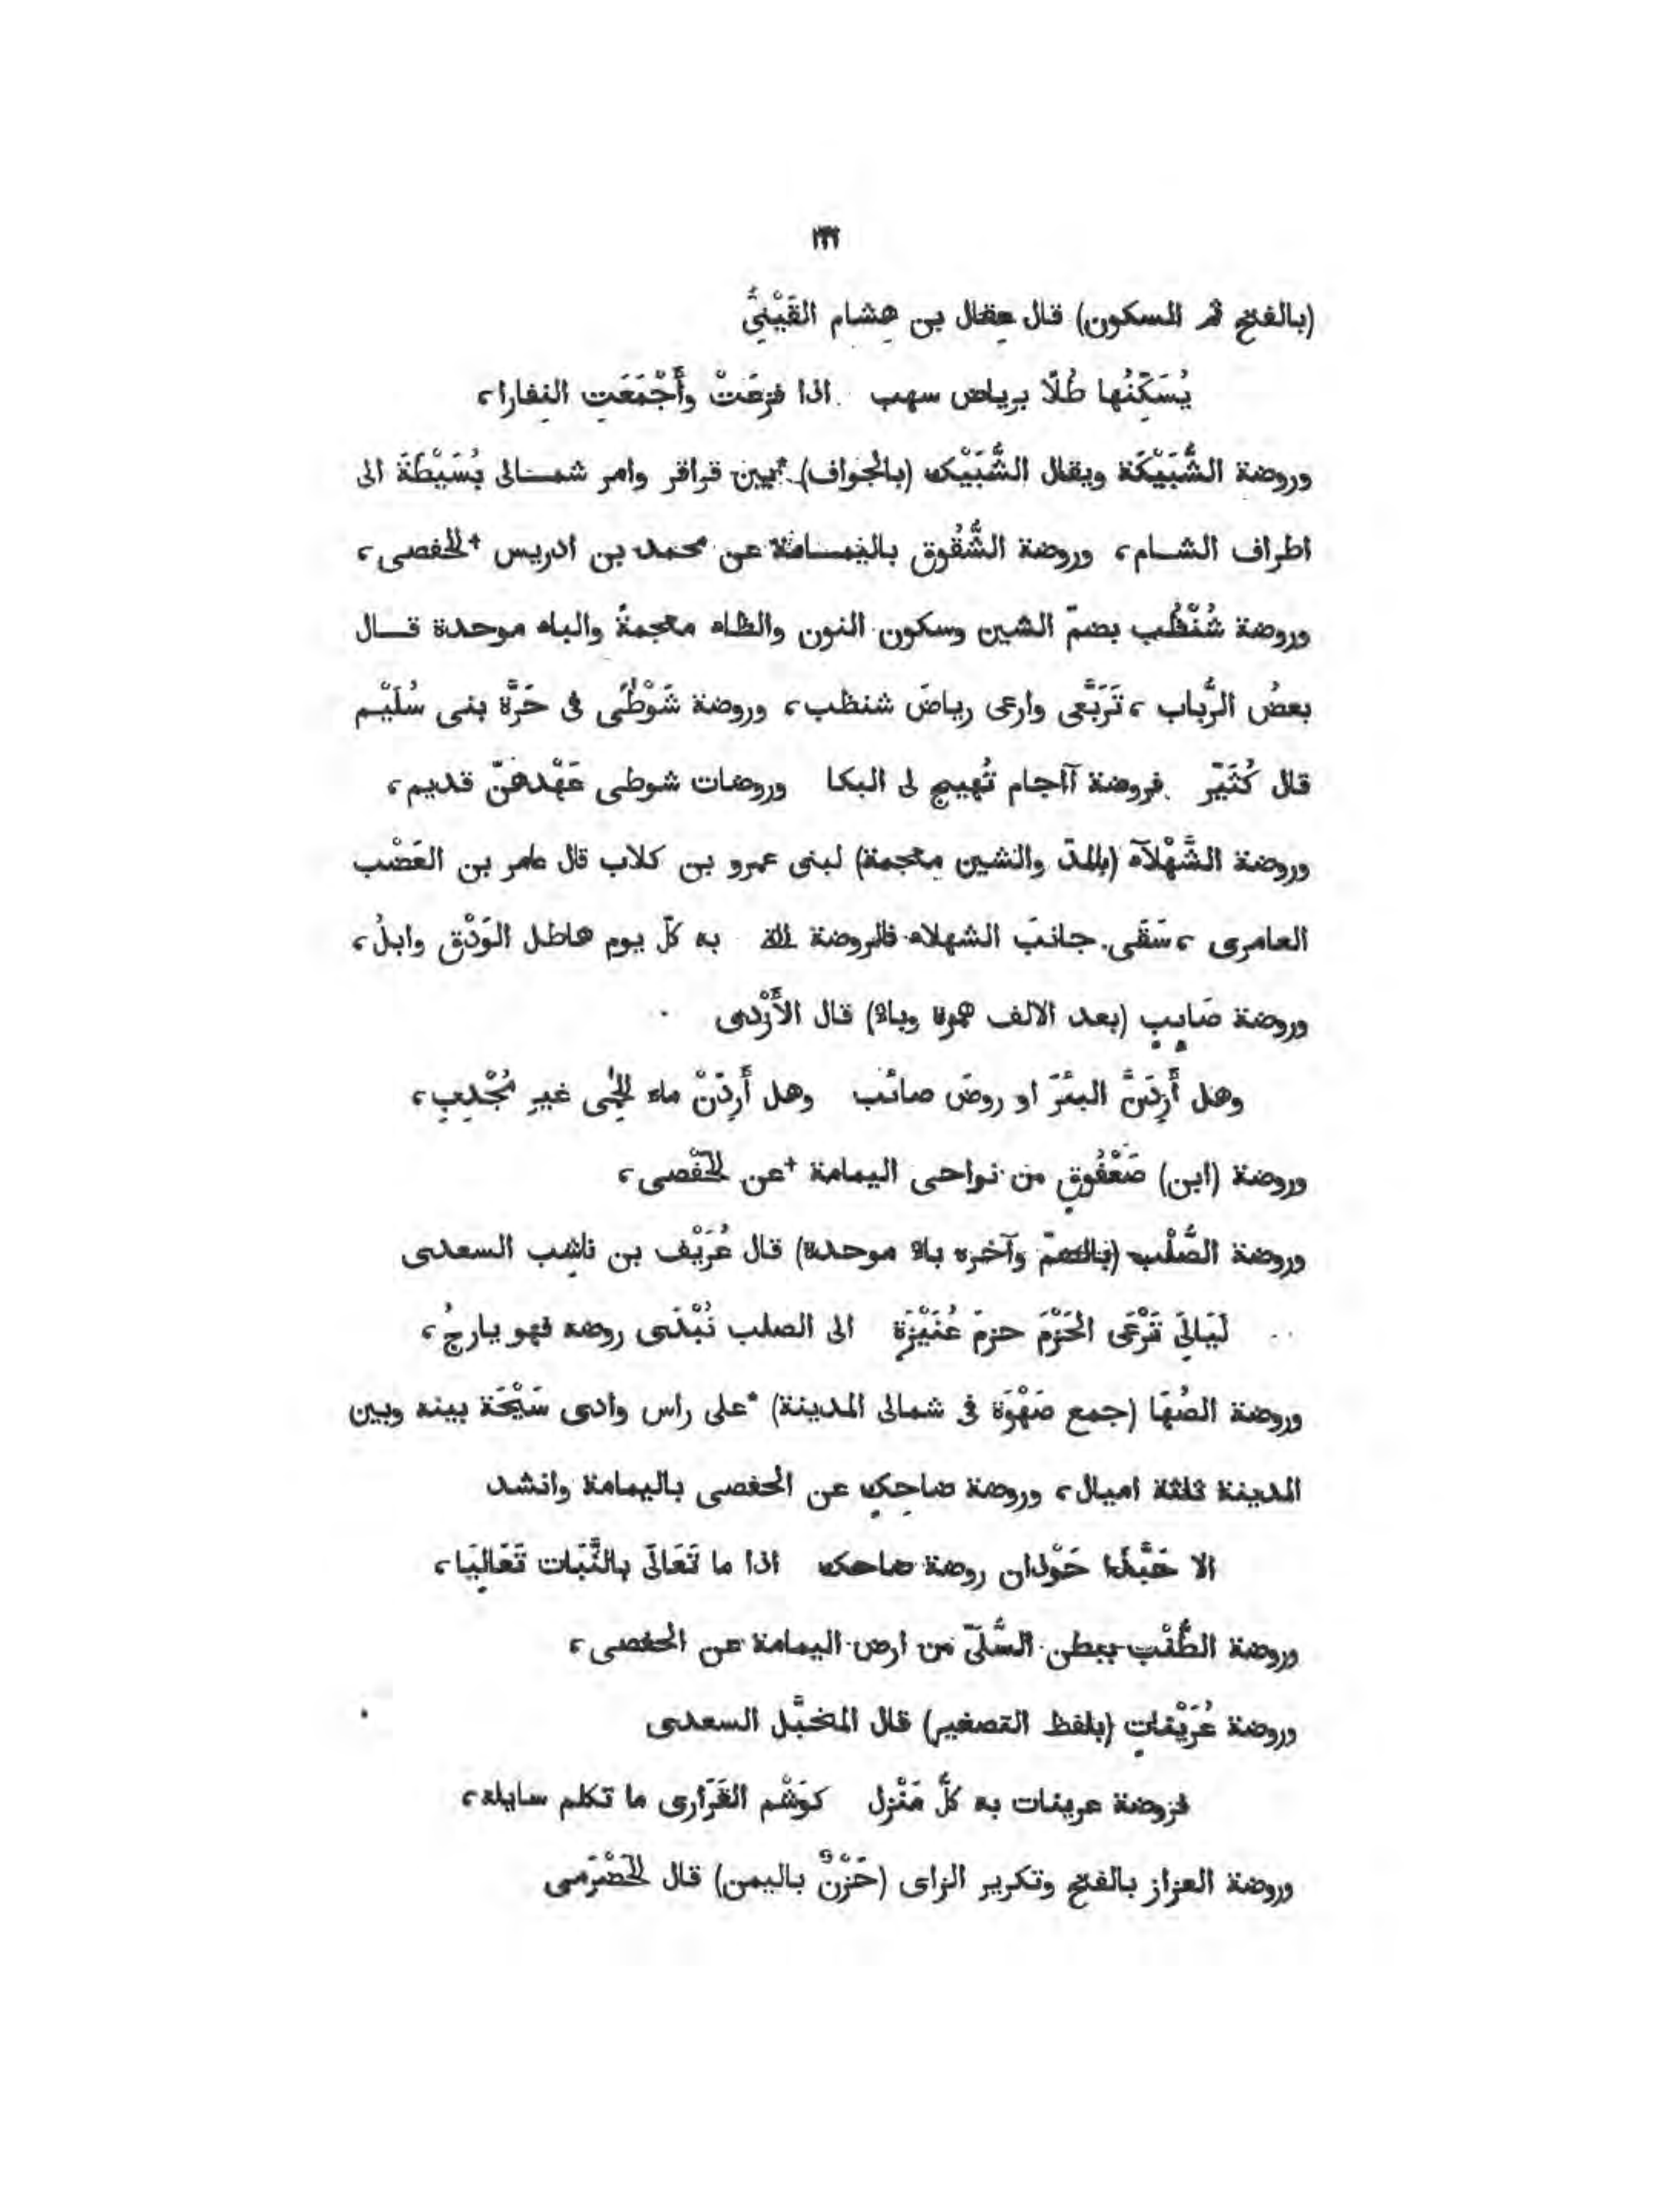 (بالفتح ثم السكون) قال عِقال بن هِشام القَيْنِيُّ
يُسَكِّنُها طُلًّا برياض سهب اذا فزعَتْ وأَجْمَعَتِ النِفارا،
وروضة الشُّبَيْكَة ويقال الشُّبَيْك (بالجواف) *بين قراقر وامر شمــالى بُسَيْطَةَ الى
اطراف الشــام، وروضة الشُّقُوق باليمــامة عن محمد بن ادريس +الحفصى،
وروضة شُنْظُب بضمّ الشين وسكون النون والظاء معجمةً والباء موحدة قــال
بعضُ الرُّباب، تَرَبَّعى وارعى رياضَ شنظب، وروضة شَوْطَى فى حَرَّة بنى سُلَيْم
قال كُثَيّر فروضة آاجام تُهيج لى البكا وروضات شوطى عَهْدهنّ قديم،
وروضة الشَّهْلآء (بالمدّ والشين معجمة) لبنى عمرو بن كلاب قال عامر بن العَضْب
العامرى، سَقَى جانبَ الشهلاء فالروضة به كلّ يوم هاطل الوَدْق وابلُ،
وروضة صَايِبٍ (بعد الالف همزة وباء) قال الأَزْدى
وهل أَرِدَنَّ البئرَ او روضَ صائب وهل أَرِدَنْ ماء الحِمَى غير مُجْدِبِ،
وروضة (ابن) صَعْفُوقٍ من نواحى اليمامة +عن الحَفْصى،
وروضة الصُّلْب (بالضمّ وآخره باء موحدة) قال عُرَيْف بن ناشِب السعدى
لَيَالِىَ تَرْعَى الحَزْمَ حزمَ عُنَيْزَةٍ الى الصلب نُبْدَى روضه فهو يارجُ،
وروضة الصُهَا (جمع صَهْوَة فى شمالى المدينة) *على راس وادى سَيْحَة بينه وبين
المدينة ثلثة اميال، وروضة ضاحِكٍ عن الحفصى باليمامة وانشد
الا حَبَّذا حَوْذان روضة ضاحك اذا ما تَعَالَى بالنَّبَات تَعَالِيَا،
وروضة الطُّنْب ببطن السُّلَىّ من ارض اليمامة عن الحفصى،
وروضة عُرَيْنَاتٍ (بلفظ التصغير) قال المخبَّل السعدى
فروضة عرينات به كلُّ مَنْزل كوَشْم القَرَارى ما تكلم سايله،
وروضة العزاز بالفتح وتكرير الزاى (حَزْنٌ باليمن) قال الحَضْرَمى